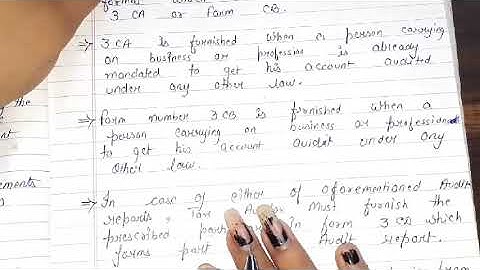 formats which
3 CA or Form CB.
⇒ 3 CA is furnished when a person carrying
on business or profession is already
mandated to get his account audited
under any other law.
⇒ form number 3 CB is furnished when a
person carrying on business or professional
to get his account auidit under any
other law.
⇒ In case of either of aforementioned Audit
reports, Tax Must furnish the
prescribed in form 3 CD which
forms part Audit report.
the
ements